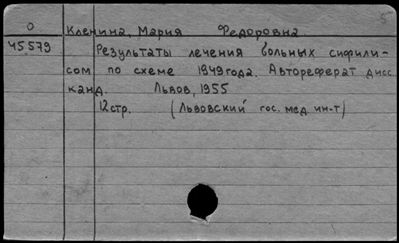 5
О Кленина, Мария Федоровна
45579 Результаты лечения больных сифили-
сом по схеме 1949года. Автореферат дисс
канд. Львов, 1955
12стр. (Львовский гос. мед. ин-т)